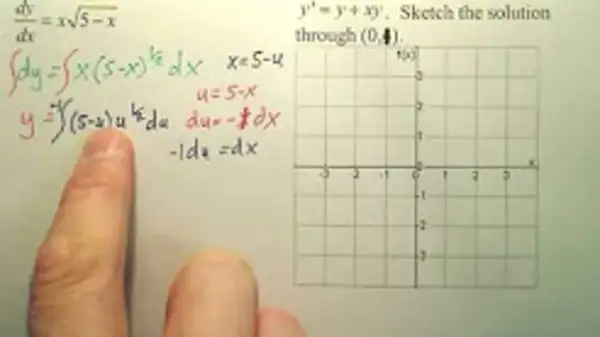 dy/dx = x√5-x
∫dy = ∫x(5-x)^1/2 dx
x=5-u
u = 5-x
y = -∫(5-u)u^1/2 du
du = -1dx
-1du = dx
y' = y + xy. Sketch the solution
through (0,
f(x)
3
2
1
-3 -2 -1 0 1 2 3
x
-1
-2
-3